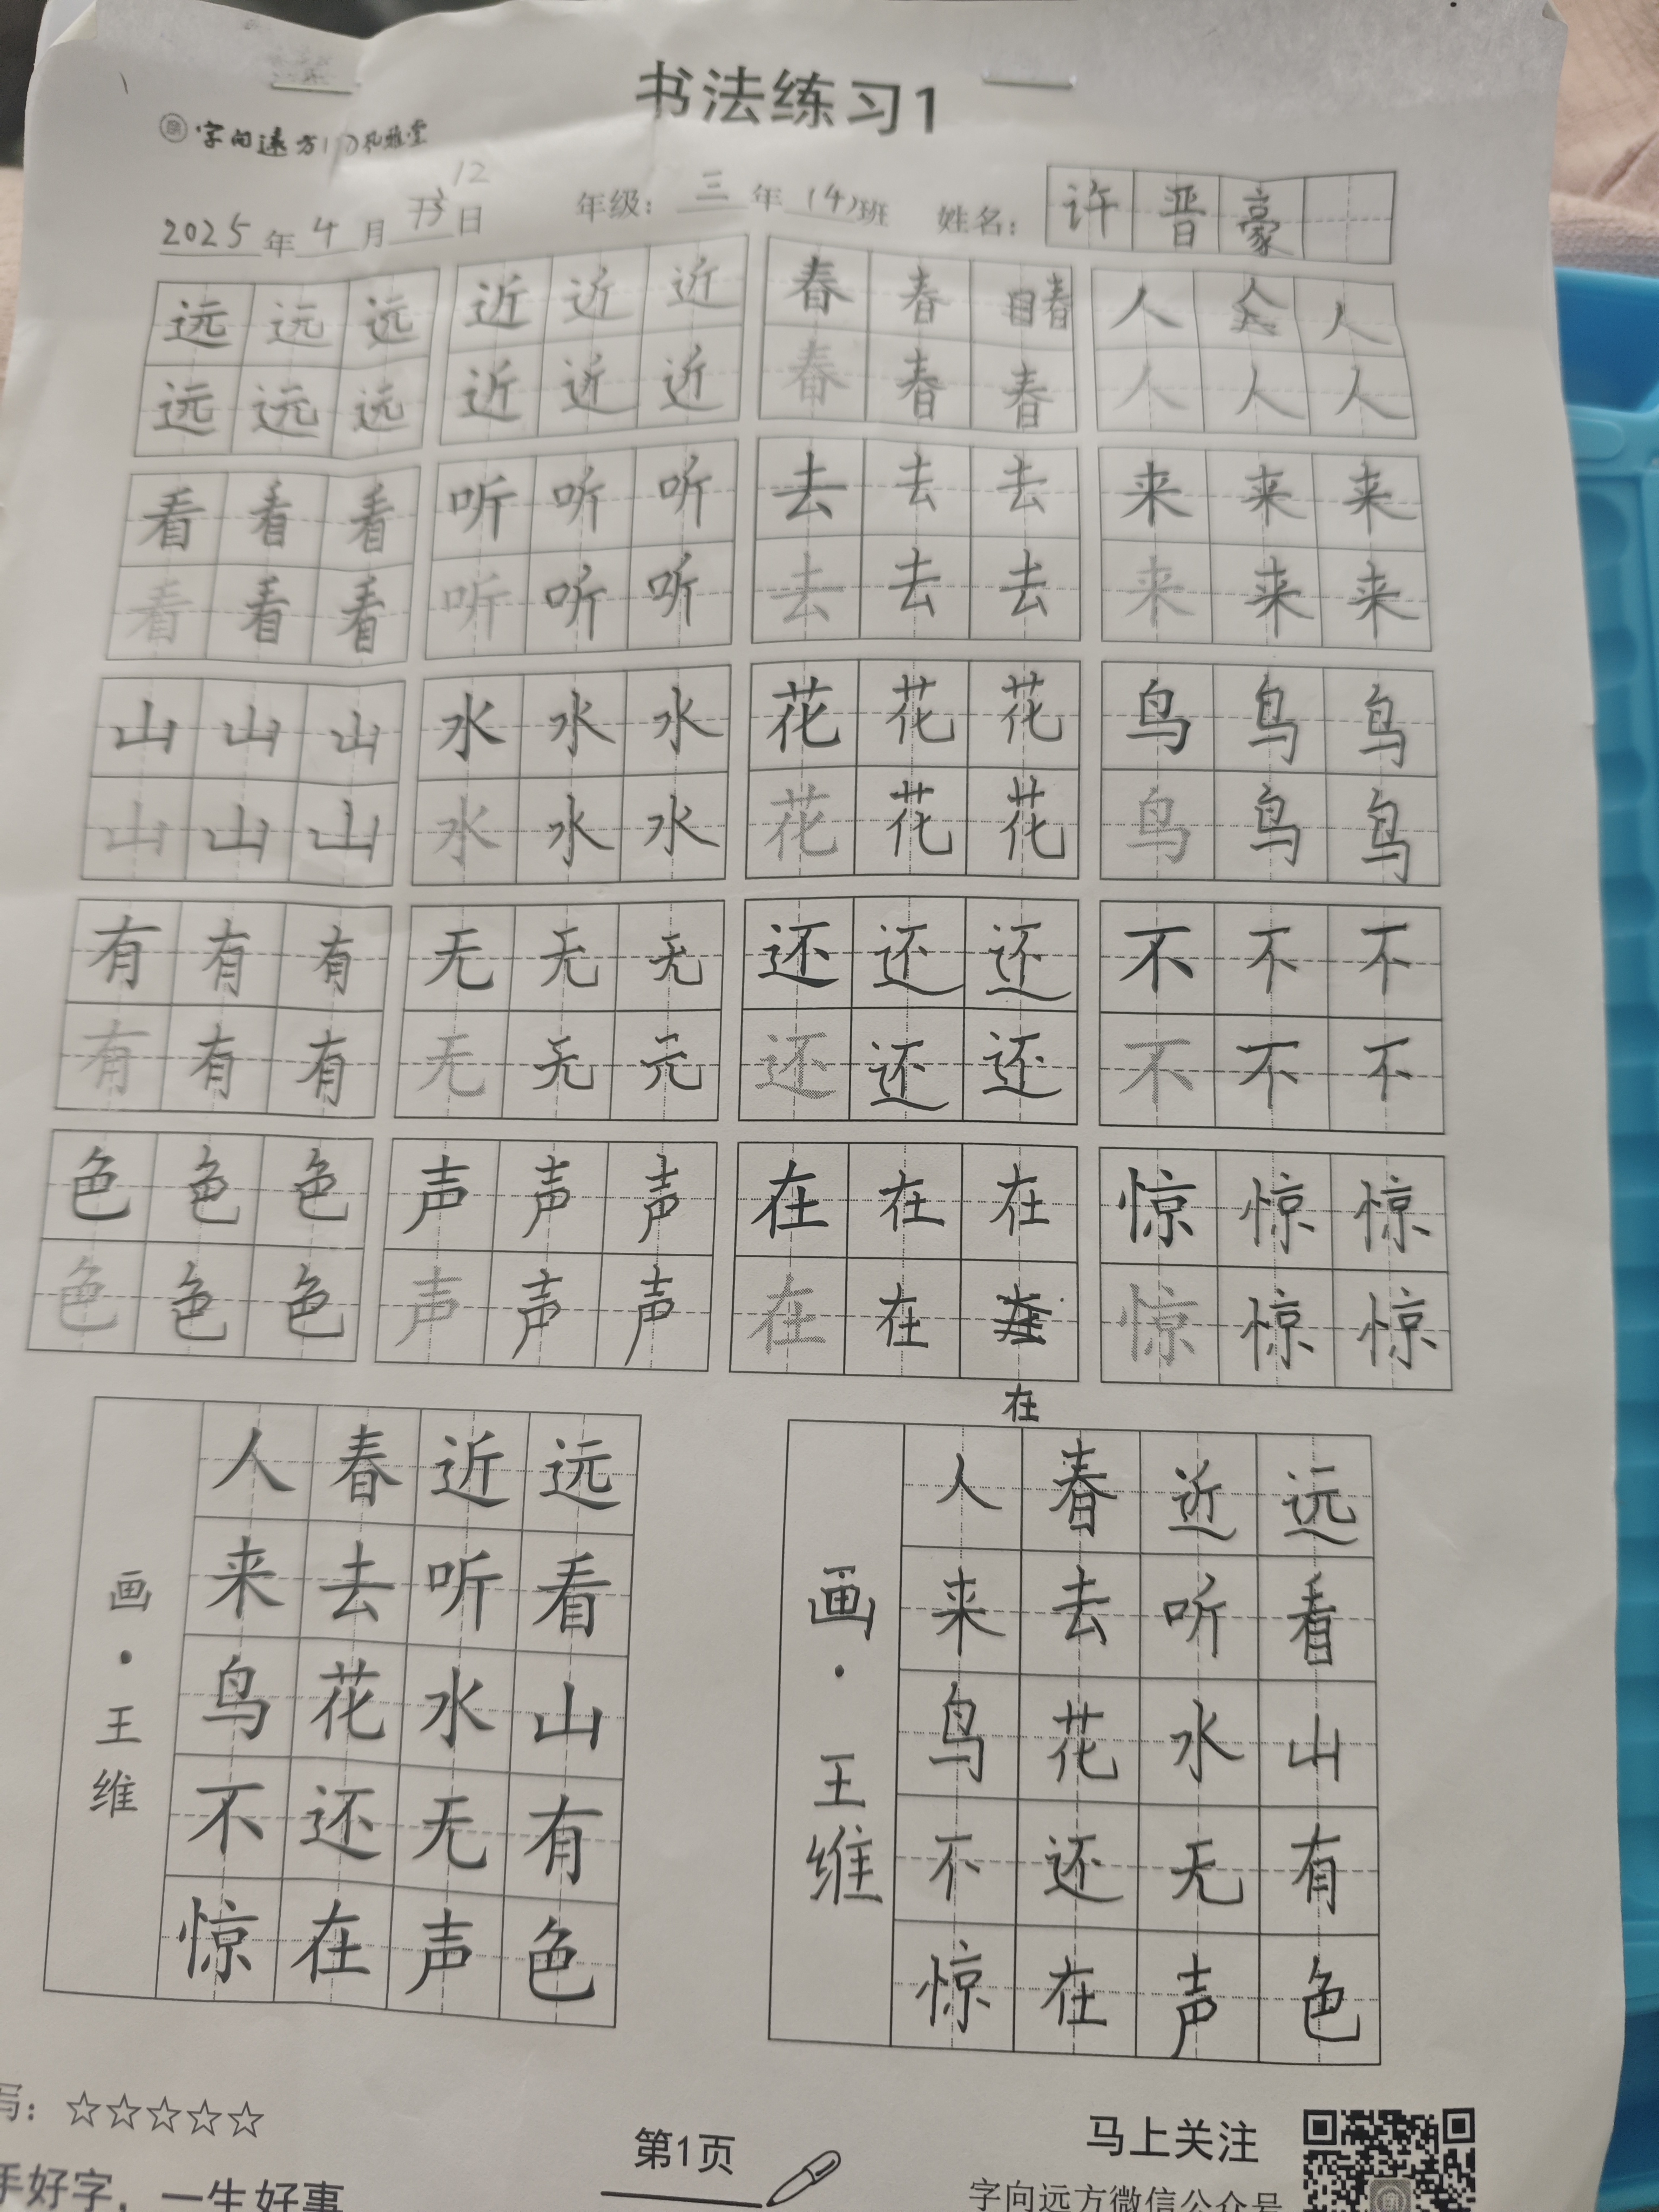 书法练习1
字向远方 风雅堂
2025年4月12日 年级：三年(4)班 姓名：许晋豪
远远远 近近近 春春春 人人
远远远 近近近 春春春 人人人
看看看 听听听 去去去 来来来
看看看 听听听 去去去 来来来
山山山 水水水 花花花 鸟鸟鸟
山山山 水水水 花花花 鸟鸟鸟
有有有 无无无 还还还 不不不
有有有 无无元 还还还 不不不
色色色 声声声 在在在 惊惊惊
色色色 声声声 在在 惊惊惊
在
远看山有色
近听水无声
春去花还在
人来鸟不惊
画·王维
远看山有色
近听水无声
春去花还在
人来鸟不惊
画·王维
写：☆☆☆☆☆
手好字，一生好事
第1页
马上关注
字向远方微信公众号